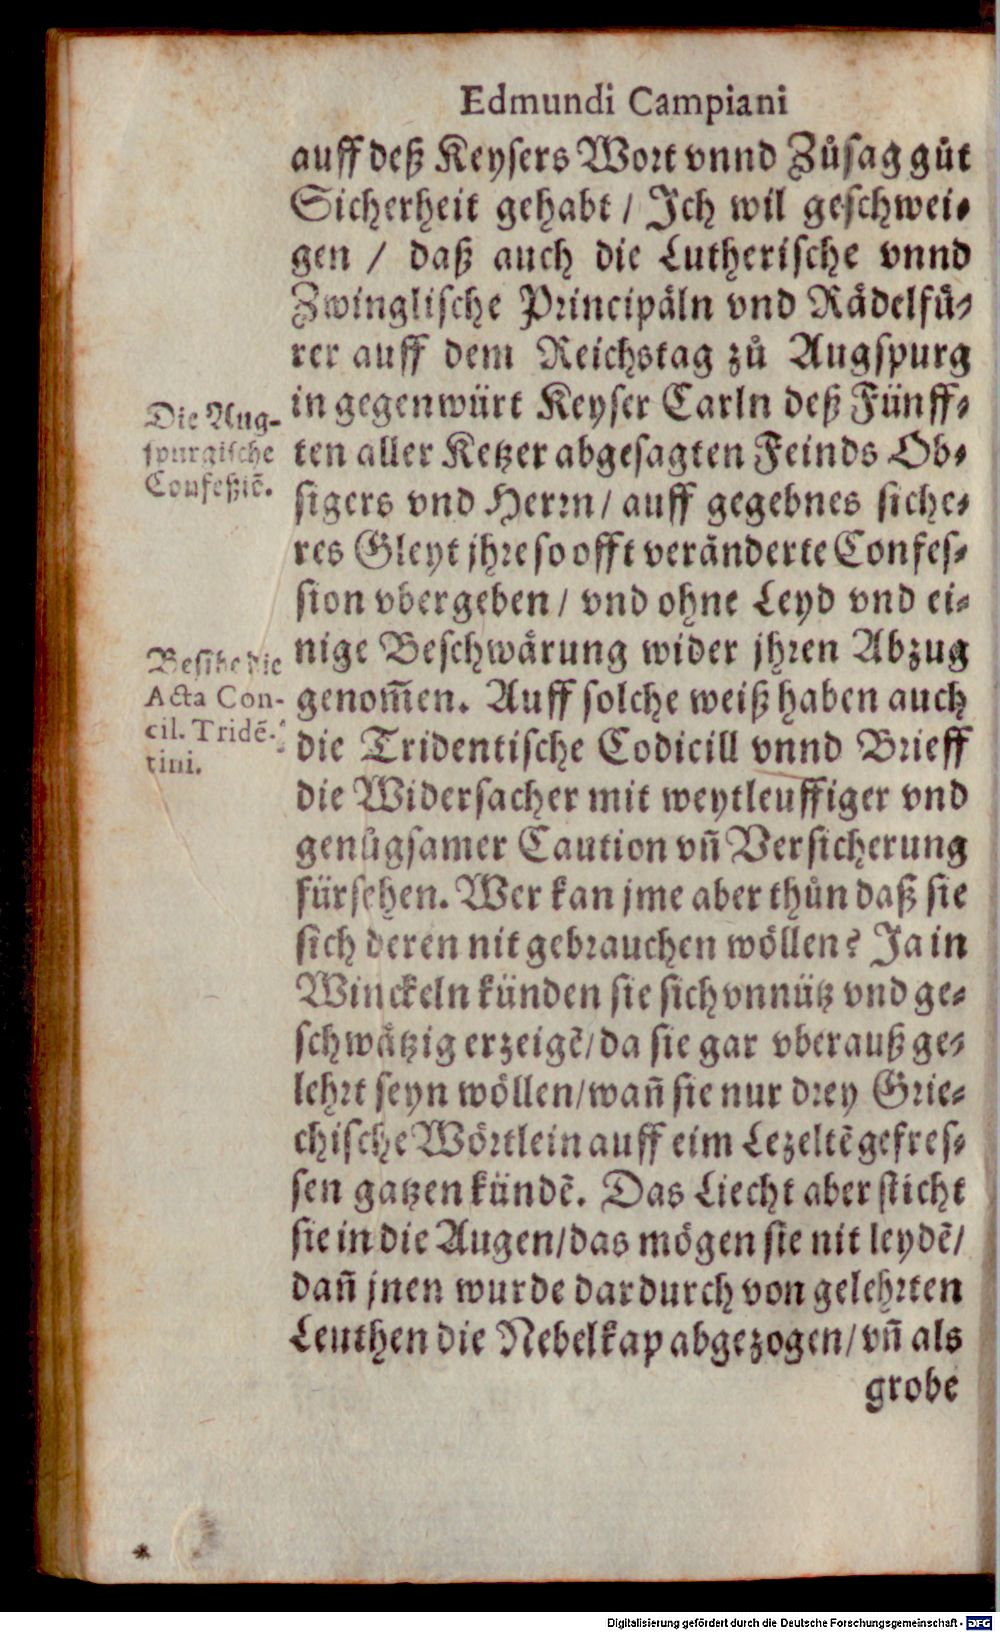 Edmundi Campiani
auff deß Keysers Wort vnnd Zůsag gůt
Sicherheit gehabt / Ich wil geschwei-
gen / daß auch die Lutherische vnnd
Zwinglische Principäln vnd Rädelfů-
rer auff dem Reichstag zů Augspurg
in gegenwürt Keyser Carln deß Fünff-
ten aller Ketzer abgesagten Feinds Ob-
sigers vnd Herrn / auff gegebnes siche-
res Gleyt jhre so offt veränderte Confes-
sion vbergeben / vnd ohne Leyd vnd ei-
nige Beschwärung wider jhren Abzug
genom̃en. Auff solche weiß haben auch
die Tridentische Codicill vnnd Brieff
die Widersacher mit weytleuffiger vnd
genůgsamer Caution vñ Versicherung
fürsehen. Wer kan jme aber thůn daß sie
sich deren nit gebrauchen wöllen? Ja in
Winckeln künden sie sich vnnütz vnd ge-
schwätzig erzeigẽ / da sie gar vberauß ge-
lehrt seyn wöllen / wañ sie nur drey Grie-
chische Wörtlein auff eim Lezeltẽ gefres-
sen gatzen kündẽ. Das Liecht aber sticht
sie in die Augen / das mögen sie nit leydẽ /
dañ jnen wurde dardurch von gelehrten
Leuthen die Nebelkap abgezogen / vñ als
grobe
Die Aug-
spurgische
Confeßiẽ.
Besihe die
Acta Con-
cil. Tridẽ-
tini.
*
Digitalisierung gefördert durch die Deutsche Forschungsgemeinschaft - DFG